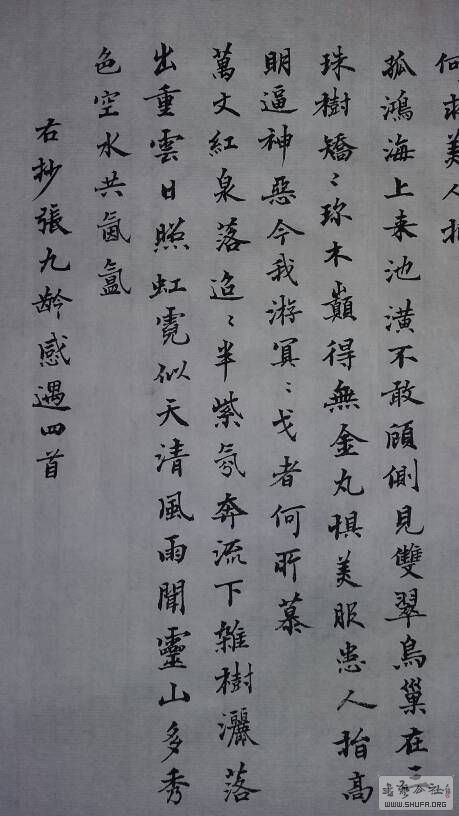 何求美人折
孤鴻海上来池潢不敢頋側見雙翠鳥巢在三
珠樹矯〻珎木巔得無金丸懼美服患人指高
明逼神惡今我游冥〻弋者何所慕
萬丈紅泉落迢〻半紫氛奔流下雜樹灑落
出重雲日照虹霓似天清風雨聞靈山多秀
色空水共氤氳
右抄張九齡感遇四首
書法公社
WWW.SHUFA.ORG